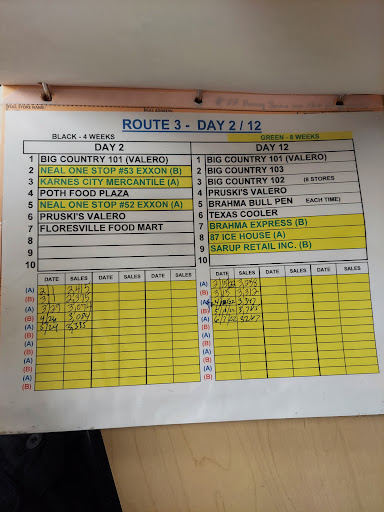 ROUTE 3 - DAY 2 / 12
BLACK - 4 WEEKS
GREEN - 8 WEEKS
DAY 2
1 BIG COUNTRY 101 (VALERO)
2 NEAL ONE STOP #53 EXXON (B)
3 KARNES CITY MERCANTILE (A)
4 POTH FOOD PLAZA
5 NEAL ONE STOP #52 EXXON (A)
6 PRUSKI'S VALERO
7 FLORESVILLE FOOD MART
8
9
10
DAY 12
1 BIG COUNTRY 101 (VALERO)
2 BIG COUNTRY 103
3 BIG COUNTRY 102 (8 STORES
4 PRUSKI'S VALERO
5 BRAHMA BULL PEN EACH TIME)
6 TEXAS COOLER
7 BRAHMA EXPRESS (B)
8 87 ICE HOUSE (A)
9 SARUP RETAIL INC. (B)
10
DATE SALES DATE SALES DATE SALES
(A) 2/1 2,415
(B) 3/1 2,375
(A) 3/29
(B) 4/26 3,084
(A) 5/24
(B)
(A)
(B)
(A)
(B)
DATE SALES DATE SALES DATE SALES
(A)
(B) 3/15
(A)
(B)
(A) 6/7/22 3247
(B)
(A)
(B)
(A)
(B)